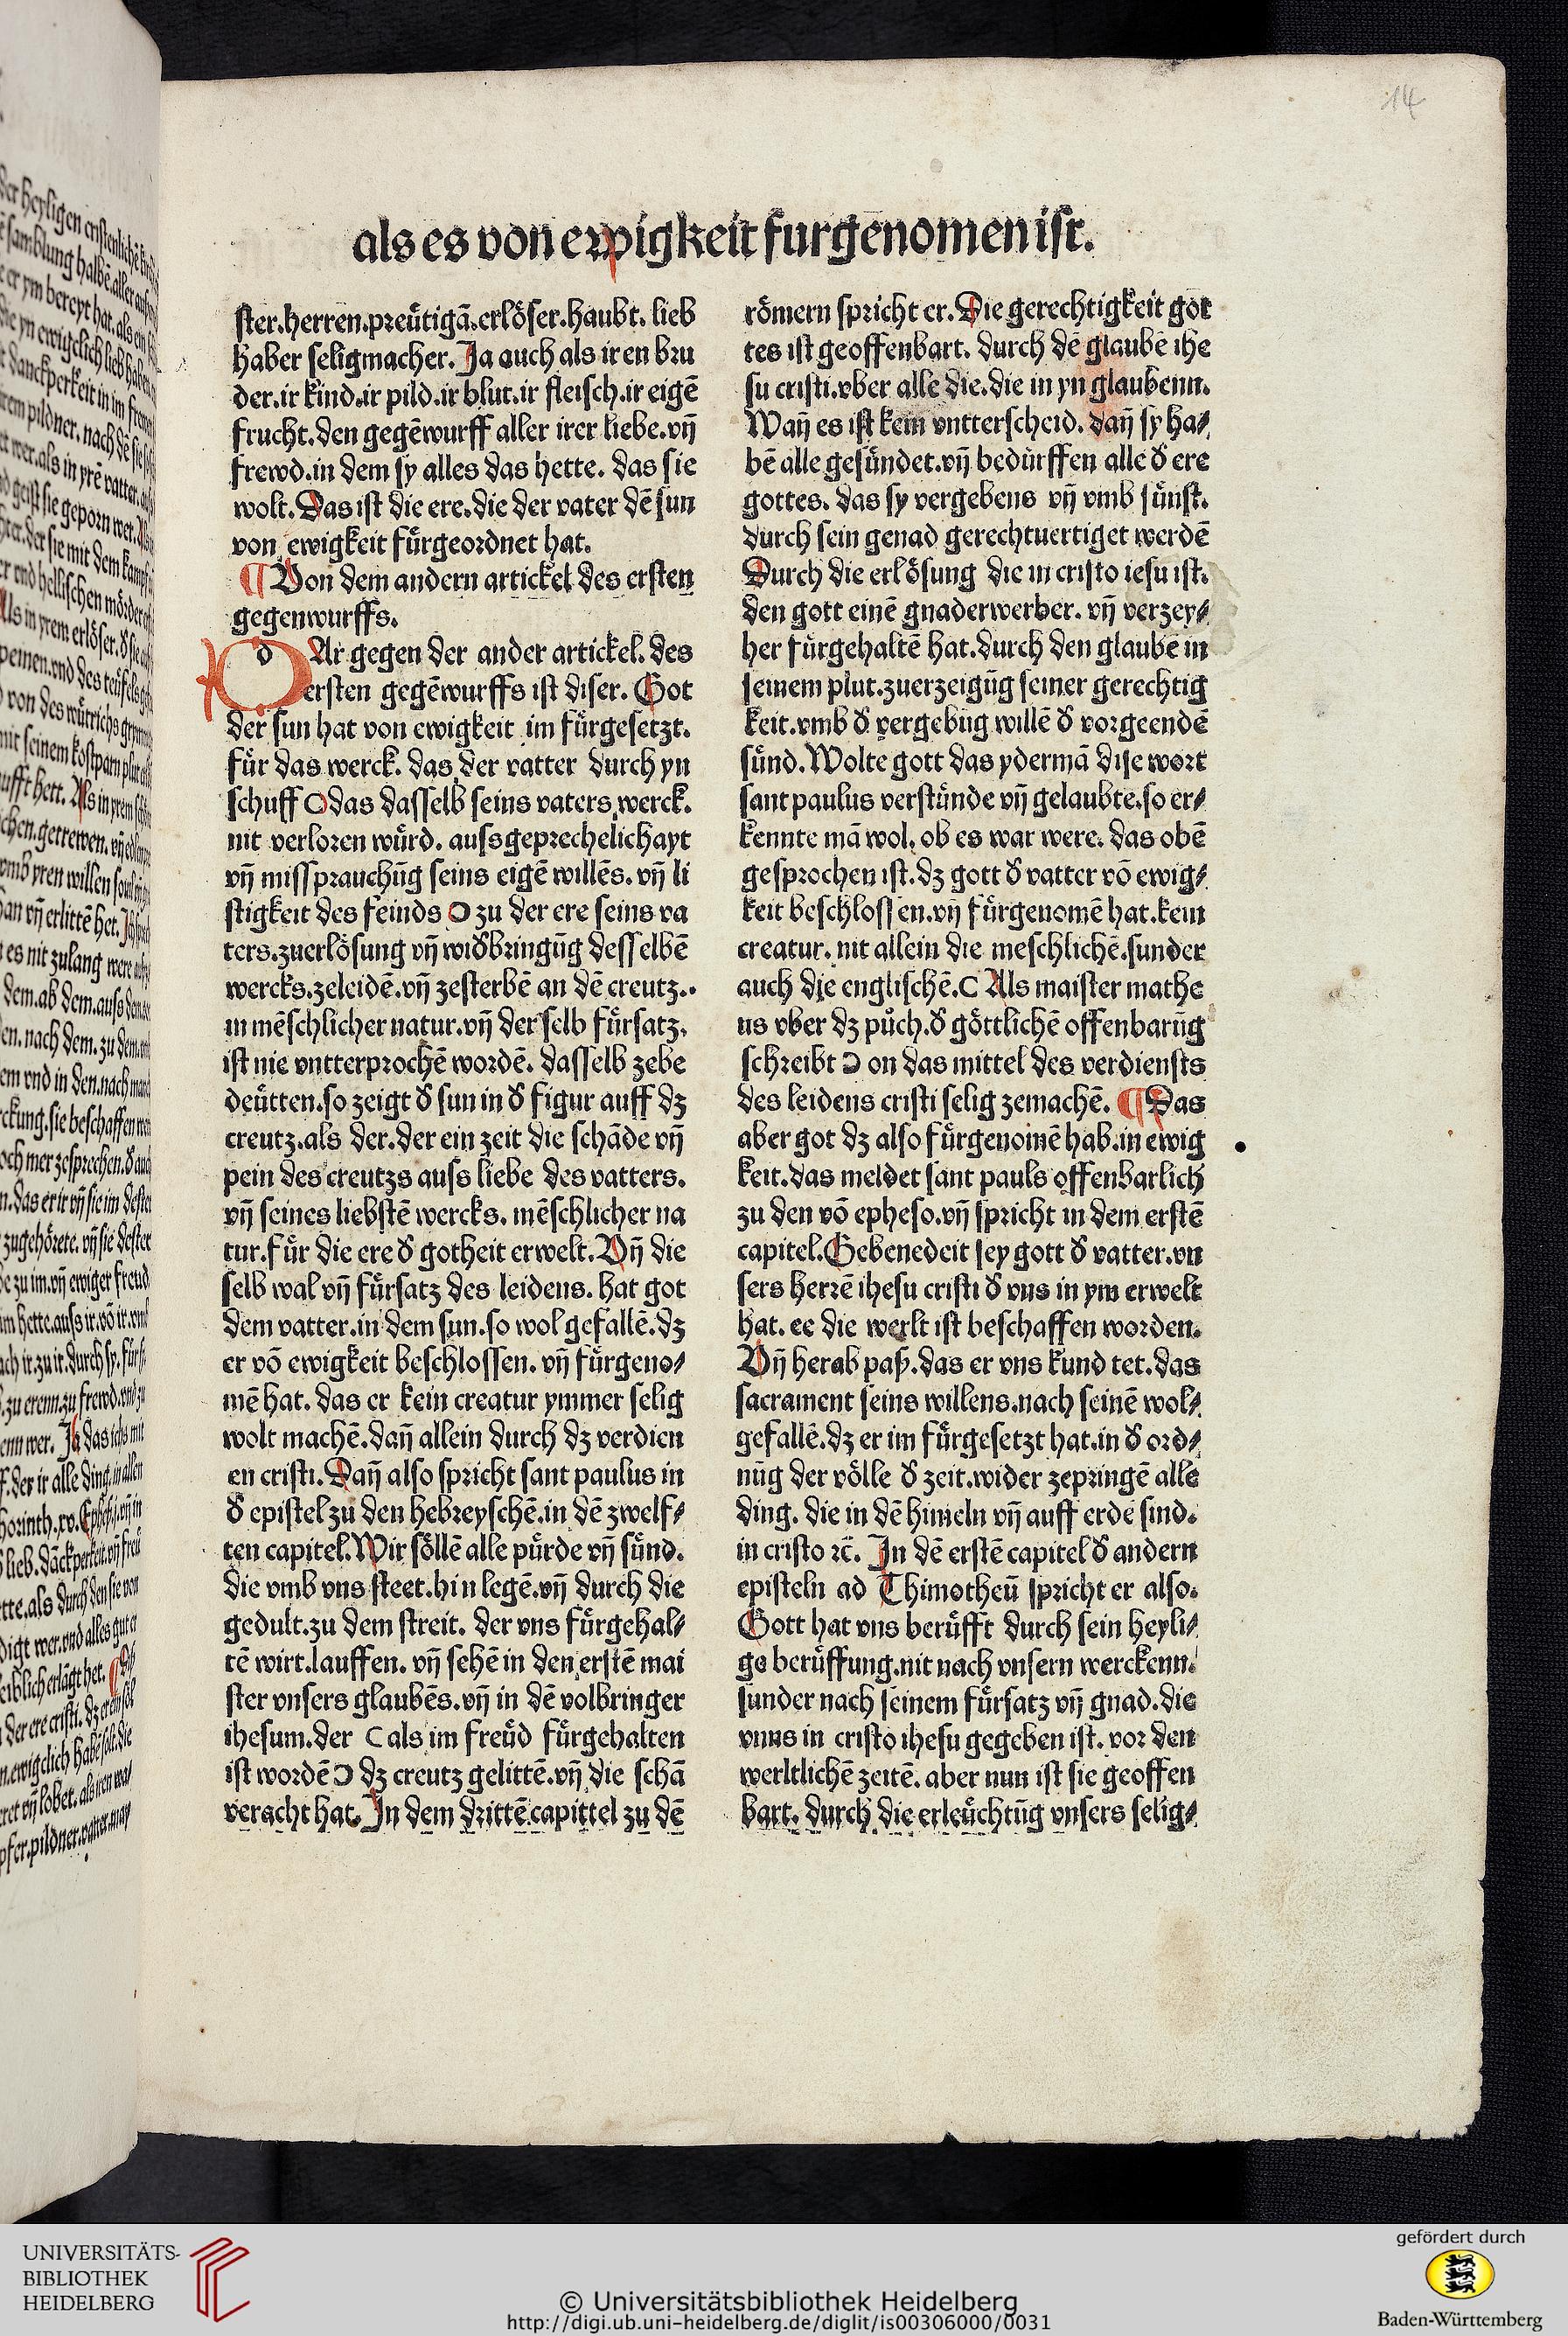 14
als es von ewigkeit furgenomen ist.
ster.herren.preütigā.erlöser.haubt. lieb
haber seligmacher. Ja auch als iren bru
der.ir kind.ir pild.ir blut.ir fleisch.ir eigē
frucht.den gegēwurff aller irer liebe.vñ
frewd.in dem sy alles das hette. das sie
wolt.Das ist die ere.die der vater dē sun
von ewigkeit fürgeordnet hat.
¶ Von dem andern artickel des ersten
gegenwurffs.
d Ar gegen der ander artickel. des
ersten gegēwurffs ist diser. Got
der sun hat von ewigkeit im fürgesetzt.
für das werck. das der vatter durch yn
schuff Ɔ das dasselb seins vaters werck.
nit verloren würd. aussgeprechelichayt
vñ missprauchūg seins eigē willēs. vñ li
stigkeit des feinds Ɔ zu der ere seins va
ters.zuerlösung vñ widbringūg desselbē
wercks.zeleidē.vñ zesterbē an dē creutz..
in mēschlicher natur.vñ der selb fürsatz.
ist nie vntterprochē wordē. dasselb zebe
deütten.so zeigt d sun in d figur auff dz
creutz.als der.der ein zeit die schāde vñ
pein des creutzs auss liebe des vatters.
vñ seines liebstē wercks. mēschlicher na
tur.für die ere d gotheit erwelt.Vñ die
selb wal vñ fürsatz des leidens. hat got
dem vatter.in dem sun.so wol gefallē.dz
er vō ewigkeit beschlossen. vñ fürgeno⸗
mē hat. das er kein creatur ymmer selig
wolt machē.dañ allein durch dz verdien
en cristi.Dañ also spricht sant paulus in
d epistel zu den hebreyschē.in dē zwelf⸗
ten capitel.Wir söllē alle pürde vñ sünd.
die vmb vns steet.hin legē.vñ durch die
gedult.zu dem streit. der vns fürgehal⸗
tē wirt.lauffen. vñ sehē in den erstē mai
ster vnsers glaubēs.vñ in dē volbringer
ihesum.der C als im freüd fürgehalten
ist wordē Ɔ dz creutz gelittē.vñ die schā
veracht hat. In dem drittē capittel zu dē
römern spricht er.Die gerechtigkeit got
tes ist geoffenbart. durch dē glaubē ihe
su cristi.vber alle die.die in yn glaubenn.
Wañ es ist kein vntterscheid. dañ sy ha⸗
bē alle gesündet.vñ bedürffen alle d ere
gottes. das sy vergebens vñ vmb sünst.
durch sein genad gerechtuertiget werdē
Durch die erlösung die in cristo iesu ist.
den gott einē gnaderwerber. vñ verzey⸗
her fürgehaltē hat.durch den glaubē in
seinem plut.zuerzeigūg seiner gerechtig
keit.vmb d vergebūg willē d vorgeendē
sünd.Wolte gott das ydermā dise wort
sant paulus verstünde vñ gelaubte.so er⸗
kennte mā wol. ob es war were. das obē
gesprochen ist.dz gott d vatter vō ewig⸗
keit beschlossen.vñ fürgenomē hat.kein
creatur. nit allein die meschlichē.sunder
auch die englischē.C Als maister mathe
us vber dz půch.d göttlichē offenbarūg
schreibt Ɔ on das mittel des verdiensts
des leidens cristi selig zemachē. ¶ Das
aber got dz also fürgenomē hab.in ewig
keit.das meldet sant pauls offenbarlich
zu den vō epheso.vñ spricht in dem erstē
capitel.Gebenedeit sey gott d vatter.vn
sers herrē ihesu cristi d vns in ym erwelt
hat. ee die werlt ist beschaffen worden.
Vñ herab paß.das er vns kund tet.das
sacrament seins willens.nach seinē wol⸗
gefallē.dz er im fürgesetzt hat.in d ord⸗
nūg der völle d zeit.wider zepringē alle
ding. die in dē himeln vñ auff erde sind.
in cristo ⁊c̄. In dē erstē capitel d andern
episteln ad Thimotheū spricht er also.
Gott hat vns berüfft durch sein heyli⸗
ge berüffung.nit nach vnsern werckenn.
sunder nach seinem fürsatz vñ gnad.die
vnns in cristo ihesu gegeben ist. vor den
werltlichē zeitē. aber nun ist sie geoffen
bart. durch die erleüchtūg vnsers selig⸗
UNIVERSITÄTS-
BIBLIOTHEK
HEIDELBERG
© Universitätsbibliothek Heidelberg
http://digi.ub.uni-heidelberg.de/diglit/is00306000/0031
gefördert durch
Baden-Württemberg